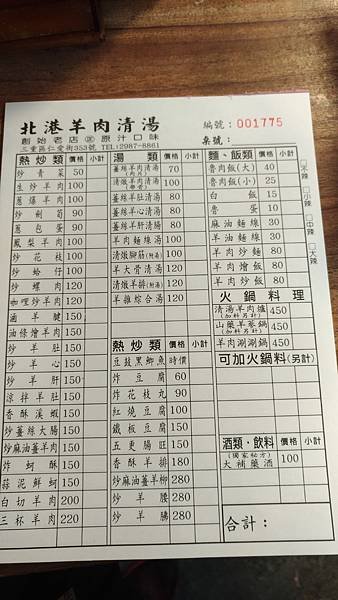 北港羊肉清湯
創始老店 原汁口味
三重區仁愛街353號 TEL:2987-8861
編號：001775
桌號：
□不辣 □小辣 □中辣 □大辣
熱炒類 價格 小計
炒青菜 50
生炒羊肉 100
蔥爆羊肉 100
炒劍筍 90
蔥包蛋 90
鳳梨羊肉 100
炒花枝 100
炒蛤仔 100
炒螺肉 120
咖哩炒羊肉 120
滷羊腱 150
油條燴羊肉 150
炒羊肚 150
炒羊心 150
炒羊肝 150
涼拌羊肚 150
香酥溪蝦 150
炒薑絲大腸 150
炒麻油薑羊肉 150
炸蚵酥 150
蒜泥鮮蚵 150
白切羊肉 200
三杯羊肉 220
湯類 價格 小計
薑絲羊肉清湯(肉片) 70
清燉羊肉清湯(帶骨) 100
薑絲羊肚清湯 80
薑絲羊心清湯 80
薑絲羊肝清湯 80
羊肉麵線湯 100
清燉腳筋(附湯) 120
羊大骨清湯 120
清燉羊排(附湯) 120
羊雜綜合湯 120
熱炒類 價格 小計
豆鼓黑鯽魚 時價
炸豆腐 60
炸花枝丸 90
紅燒豆腐 100
鐵板豆腐 150
五更腸旺 150
香酥羊排 180
炒麻油薑羊柳 280
炒羊腰 280
炒羊腩 280
麵、飯類 價格 小計
魯肉飯(大) 40
魯肉飯(小) 25
白飯 15
魯蛋 10
麻油麵線 30
羊油麵線 30
羊肉炒麵 80
羊肉燴飯 80
羊肉炒飯 80
火鍋料理
清湯羊肉爐(加料另計) 450
山藥羊蔘鍋(加料另計) 450
羊肉涮涮鍋 450
可加火鍋料(另計)
酒類、飲料 價格 小計
(獨家秘方)
大補藥酒 100
合計：